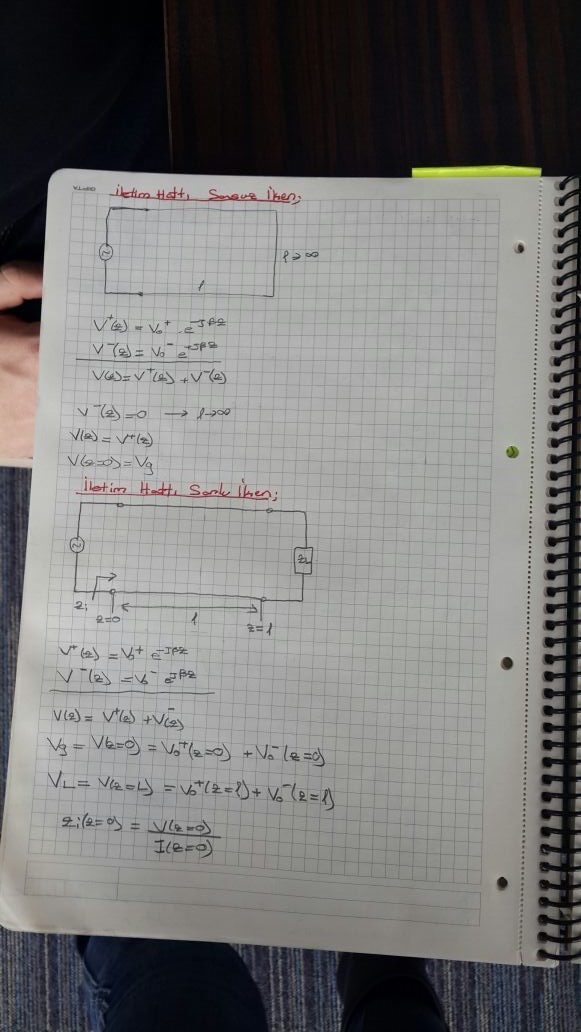 İletim Hattı Sonsuz İken;
l→∞
l
V⁺(z) = V₀⁺ . e^-Jβz
V⁻(z) = V₀⁻ e^+Jβz
V(z) = V⁺(z) + V⁻(z)
V⁻(z) = 0 → l→∞
V(z) = V⁺(z)
V(z=0) = Vg
İletim Hattı Sonlu İken;
ZL
Zi
z=0
l
z=l
V⁺(z) = V₀⁺ e^-Jβz
V⁻(z) = V₀⁻ e^Jβz
V(z) = V⁺(z) + V⁻(z)
Vg = V(z=0) = V₀⁺(z=0) + V₀⁻(z=0)
VL = V(z=L) = V₀⁺(z=l) + V₀⁻(z=l)
Zi(z=0) = V(z=0)
I(z=0)